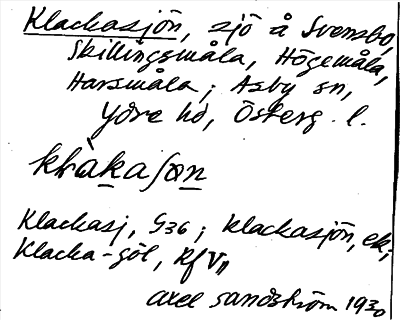 Klackasjön, sjö å Svensbo,
Skillingsmåla, Högemåla,
Harsmåla; Asby sn,
Ydre hd, Österg. l.
Klackasj, G36; Klackasjön, ek;
Klacka-göl, Rf V
Axel Sandström 1930